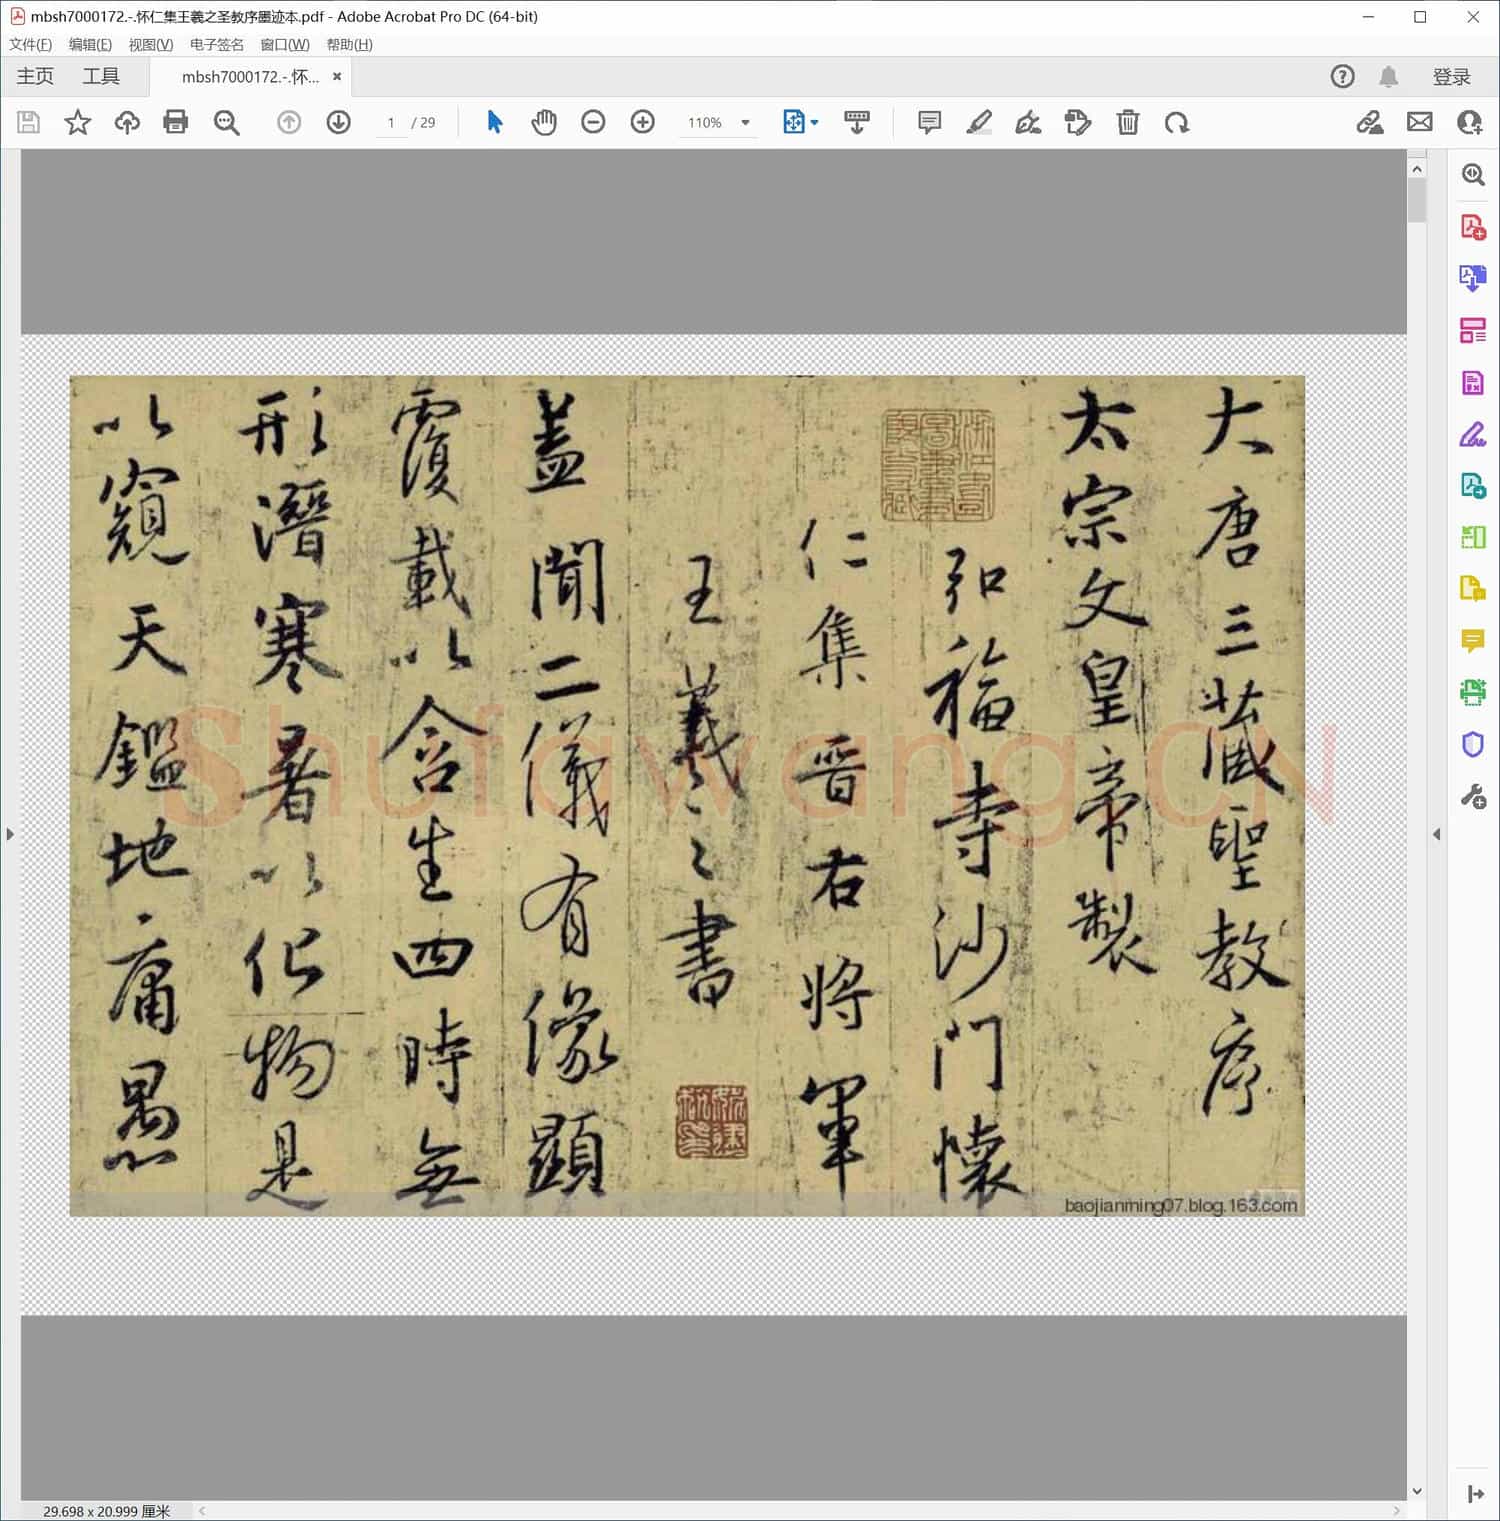 mbsh7000172.-.怀仁集王羲之圣教序墨迹本.pdf - Adobe Acrobat Pro DC (64-bit)
文件(F) 编辑(E) 视图(V) 电子签名 窗口(W) 帮助(H)
主页 工具 mbsh7000172.-.怀... 登录
1 / 29 110%
大唐三藏聖教序
太宗文皇帝製
弘福寺沙門懷
仁集晉右將軍
王羲之書
蓋聞二儀有像顯
覆載以含生四時無
形潛寒暑以化物是
以窺天鑑地庸愚
Shufawang.CN
baojianming07.blog.163.com
29.698 x 20.999 厘米